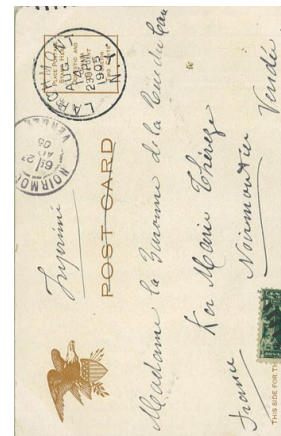 LARCHMONT
AUG
2 30 PM
1905
N.Y.
NOIRMOUTIER
VENDEE
05
Imprimé
POST CARD
Madame la Baronne de la
Ker Marie Thérèse
Noirmoutier Vendée
France
THIS SIDE FOR TH